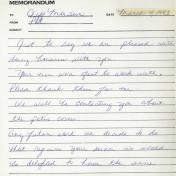 MEMORANDUM
TO Jeff
DATE March 4, 1983
FROM
SUBJECT
Just to say we are pleased with
doing business with you.
Your men were great to work with,
Please thank them for me
We will be contacting you about
the patio cover.
Any future work we decide to do
that requires your services we would
be delighted to have the same